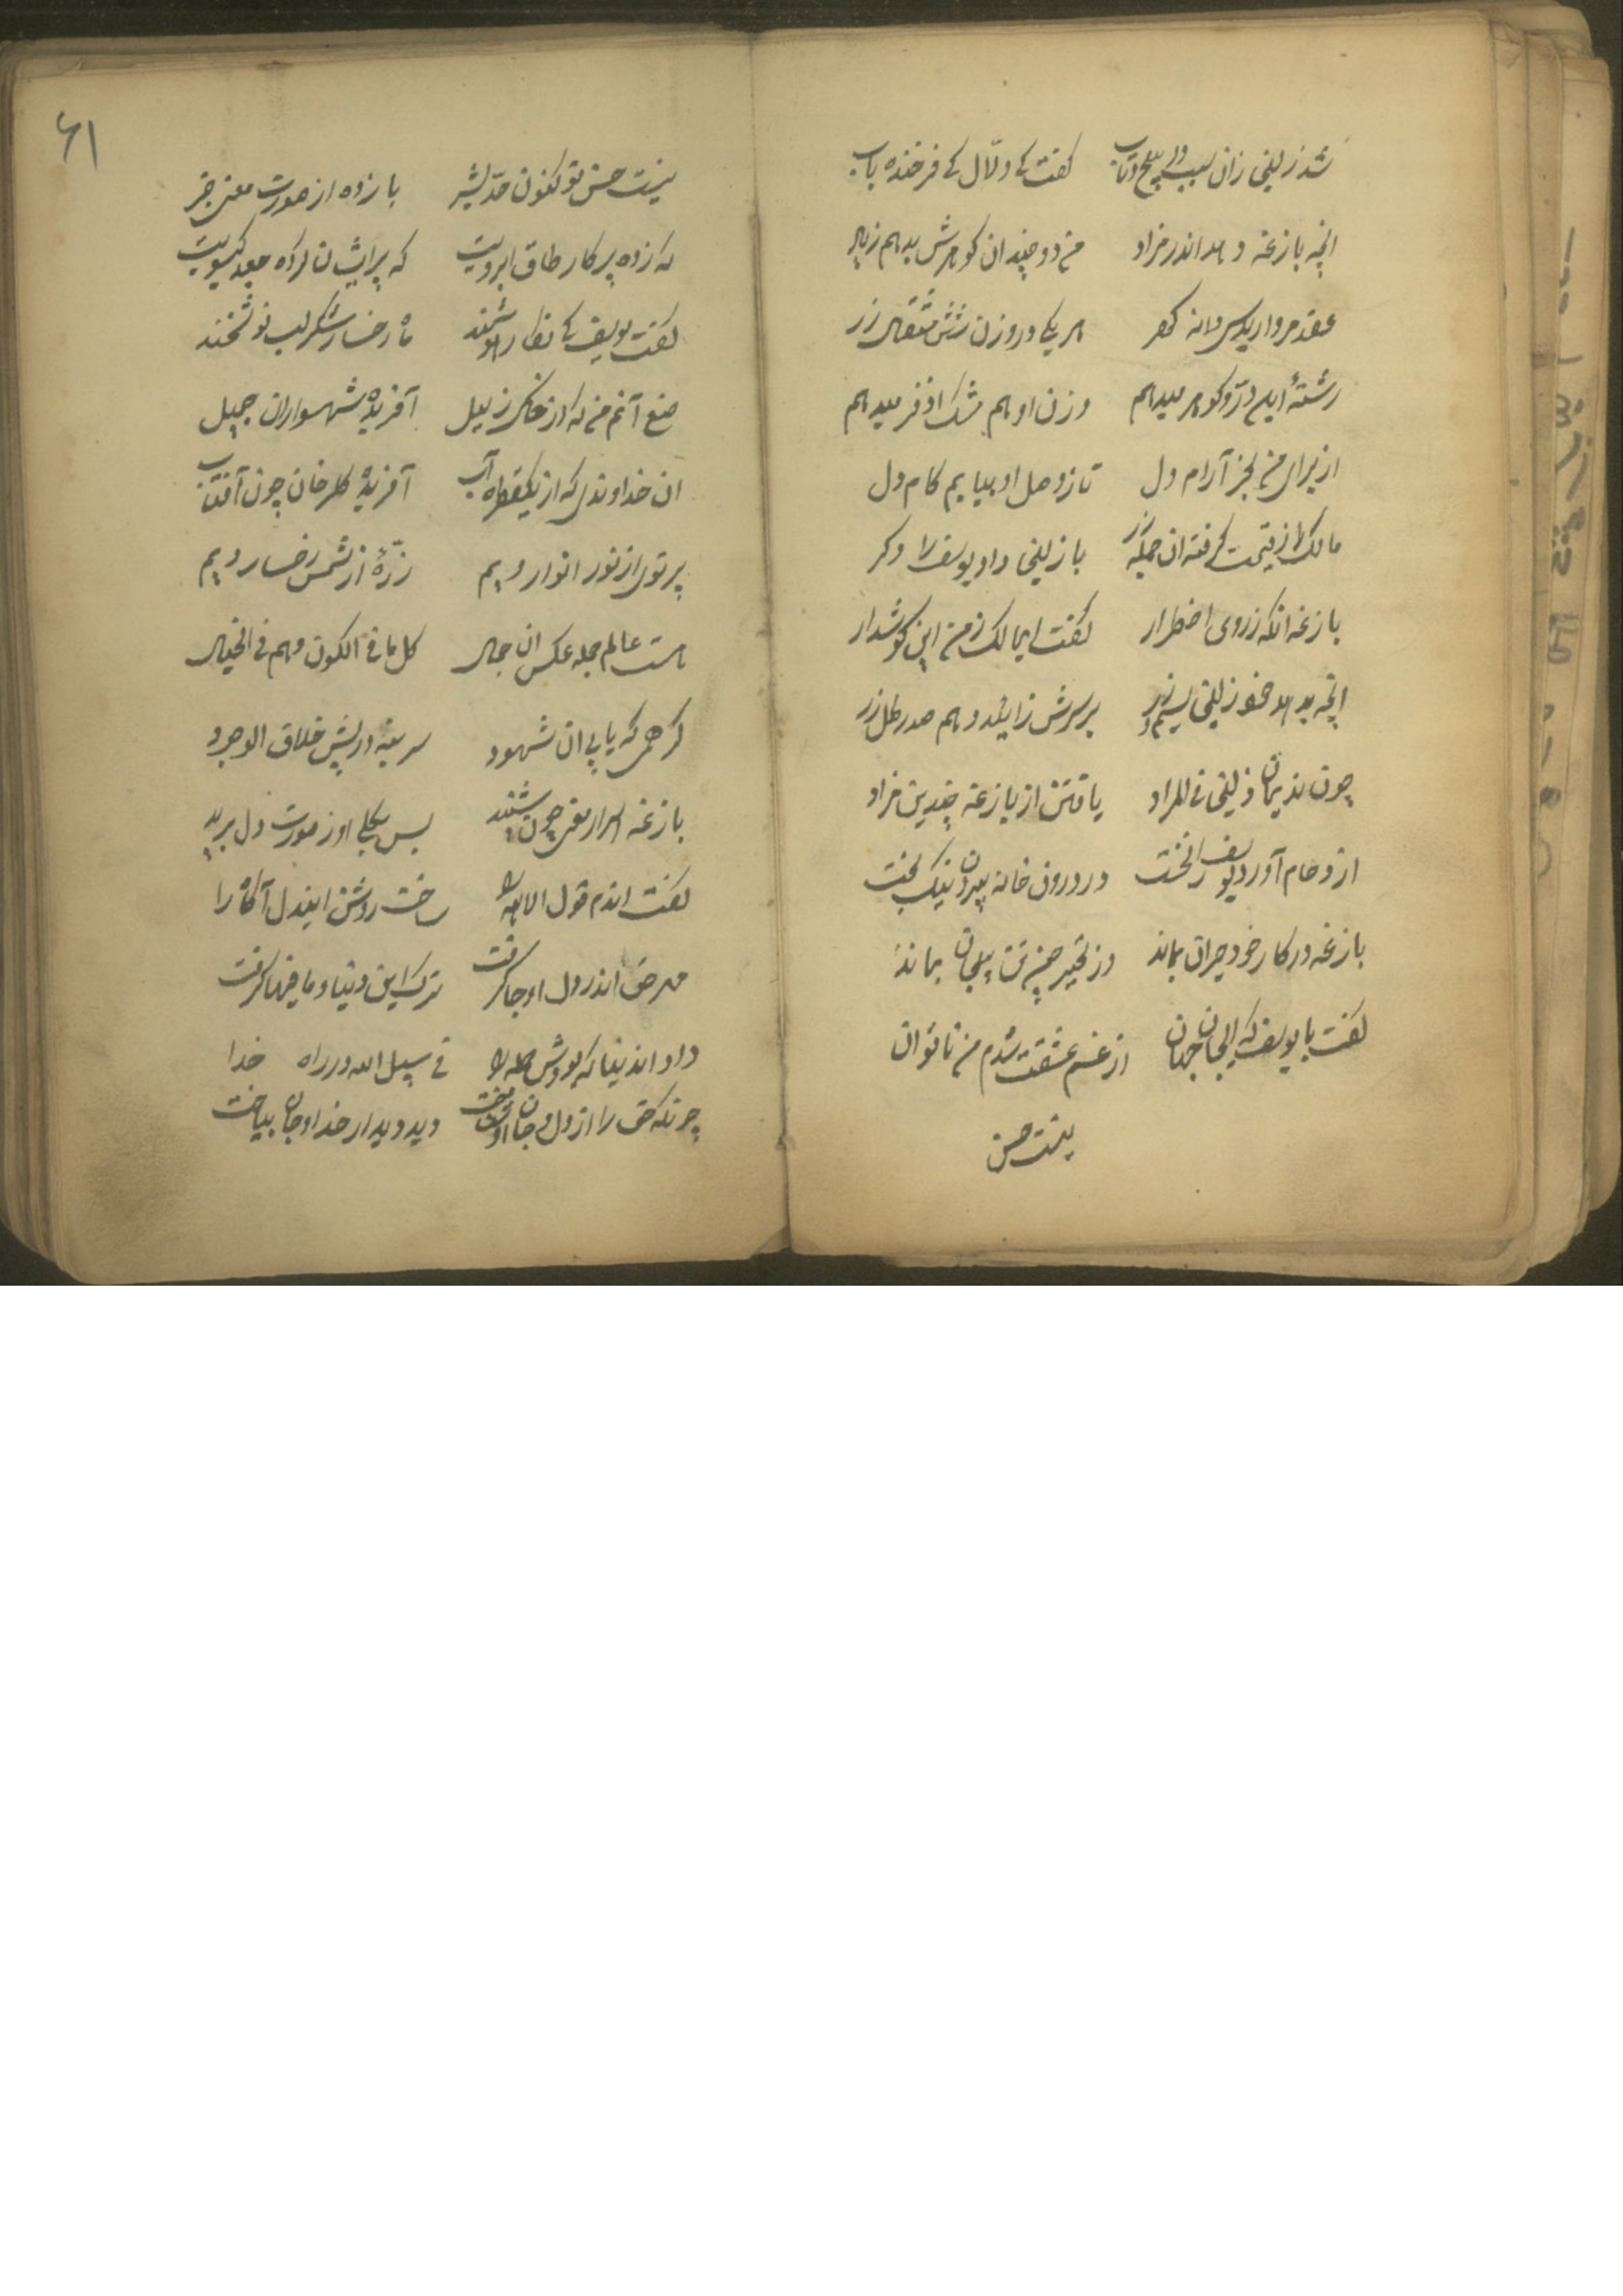 شد زلیخی زان سبب در پیچ و تاب گفت کای دلال کای فرخنده یاب
انچه بازغه دهد اندر مزاد من دو چندان گوهرش بدهم زیاد
عقد مروارید سی دانه گهر هر یکی در وزن شش مثقال زر
رشتهٔ این در و گوهر میدهم وزن او هم مشک اذفر میدهم
از برای من بخر آرام دل تا ز وصل او بیابم کام دل
مالک از قیمت گرفته ان جمله زر با زلیخی داد یوسف را دگر
بازغه انکه ز روی اضطرار گفت ایمالک ز من این گوشدار
انچه بدهد زلیخی سیم و زر بر سرش زاید دهم صد رطل زر
چون ندیمان زلیخی فی المراد یافتن از بازغه چندین مزاد
از دحام آورد یوسف را بخت در درون خانه بیرون نیک بخت
بازغه در کار خود حیران بماند وز تحیر چون تن بیجان بماند
گفت با یوسف که ایجان جهان از غم عشقت شدم من ناتوان
نیست حسن
نیست حسن تو کنون حد بشر باز ده از صورت معنی خبر
که زده پرکار طاق ابرویت که پریشان کرده جعد گیسویت
گفت یوسف کای نظار هوشمند ماه رخسار شکر لب نوشخند
صنع آنم من که از خاک زبیل آفریده شهسواران جمیل
ان خداوندی که از یکقطره آب آفریده گلرخان چون آفتاب
پرتوی از نور انوار ویم زرهٔ از شمس رخسار ویم
هست عالم جمله عکس ان جمال کل ما فی الکون وهم فی الخیال
گر همی که یابی ان شهود سر بنه در پیش خلاق الوجود
بازغه اسرار معنی چون شنید بس بجای او ز صورت دل برید
گفت اندم قول الا الله را ساخت روشن ایندل آگاه را
مهر حق اندر دل او جا گرفت ترک این دنیا و ما فیها گرفت
داد اندنیا که بودش جمله را فی سبیل الله در راه خدا
چونکه حق را از دل و جان او شناخت دید دیدار خدا و جان بباخت
۶۱